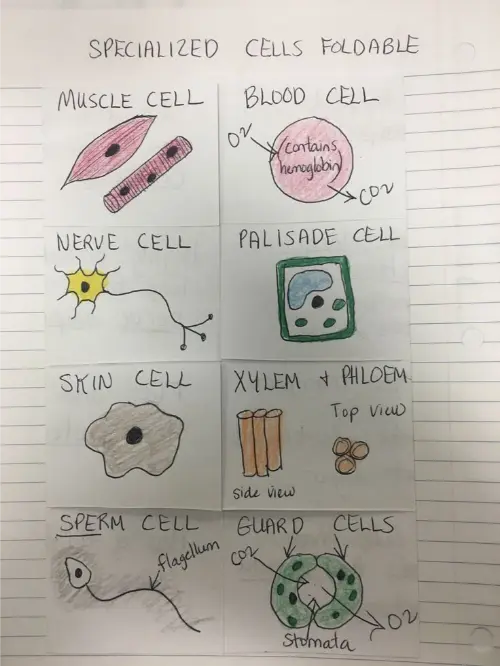 SPECIALIZED CELLS FOLDABLE
MUSCLE CELL
BLOOD CELL
O2
(contains
hemoglobin)
CO2
NERVE CELL
PALISADE CELL
SKIN CELL
XYLEM + PHLOEM
Top View
side view
SPERM CELL
flagellum
GUARD CELLS
CO2
O2
Stomata